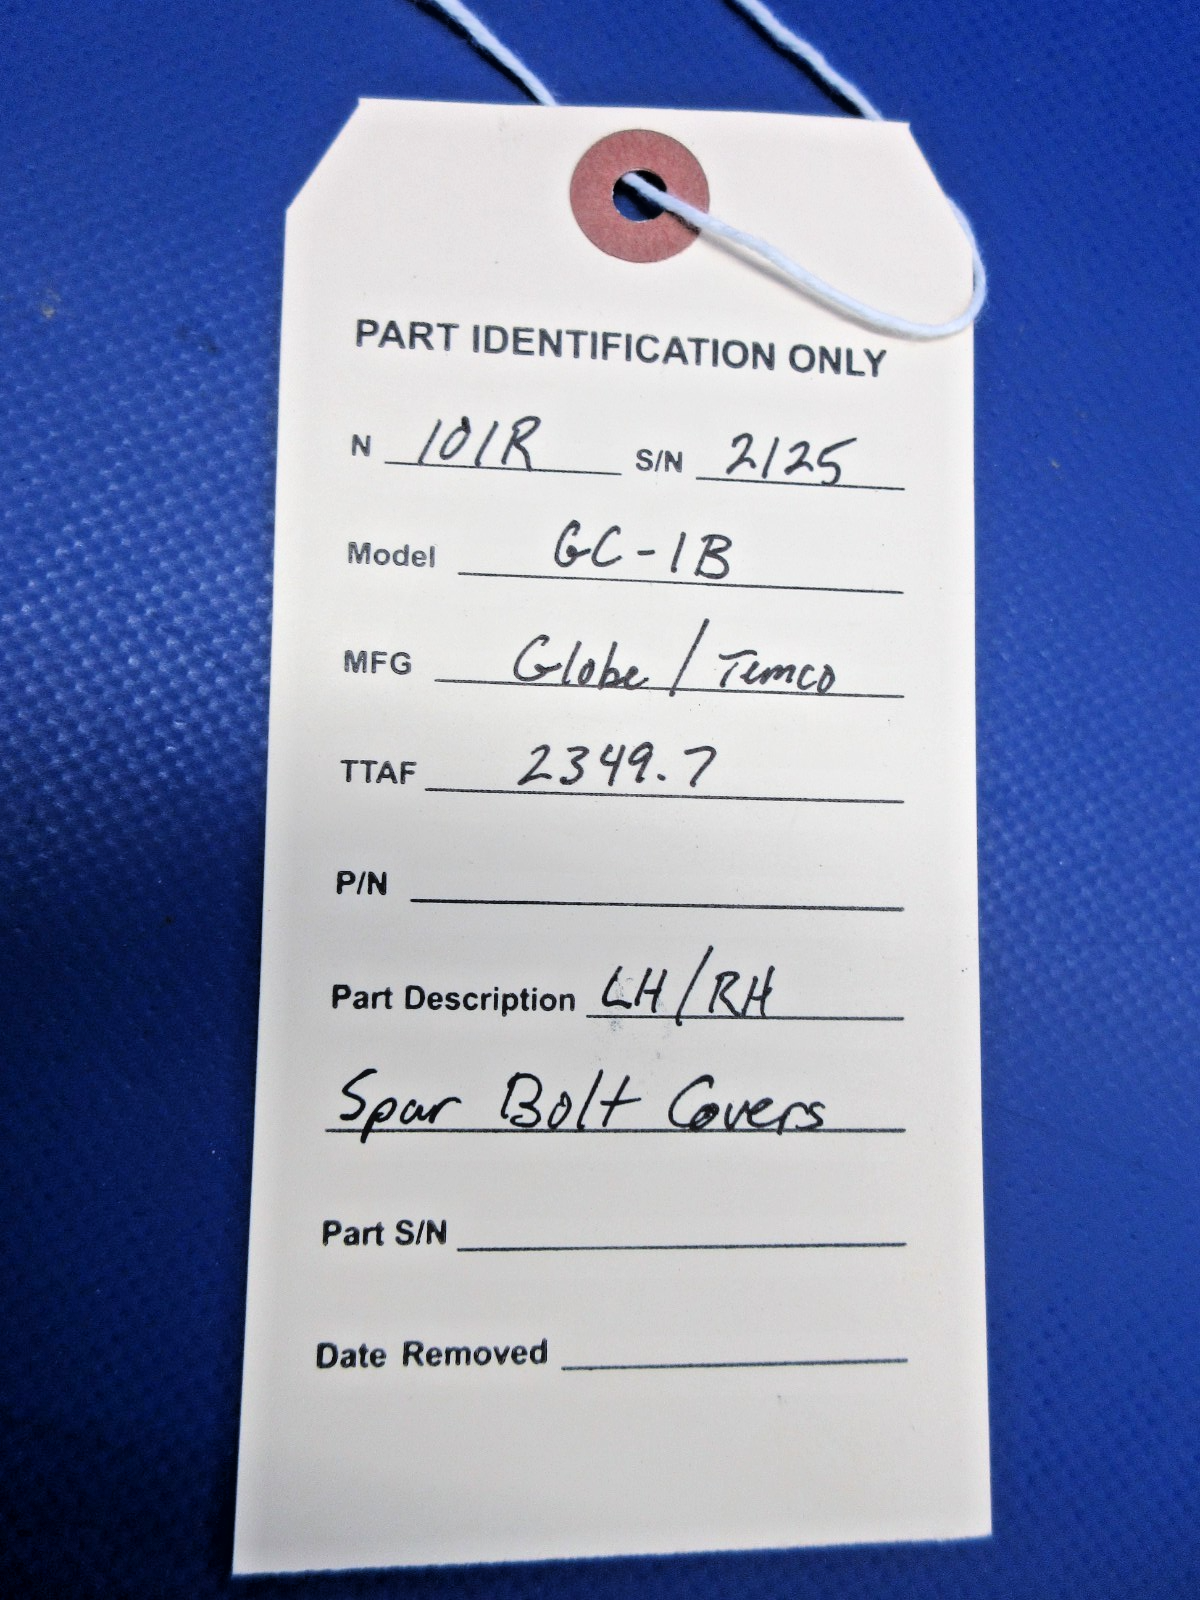 PART IDENTIFICATION ONLY
N 101R S/N 2125
Model GC-1B
MFG Globe/Temco
TTAF 2349.7
P/N
Part Description LH/RH
Spar Bolt Covers
Part S/N
Date Removed